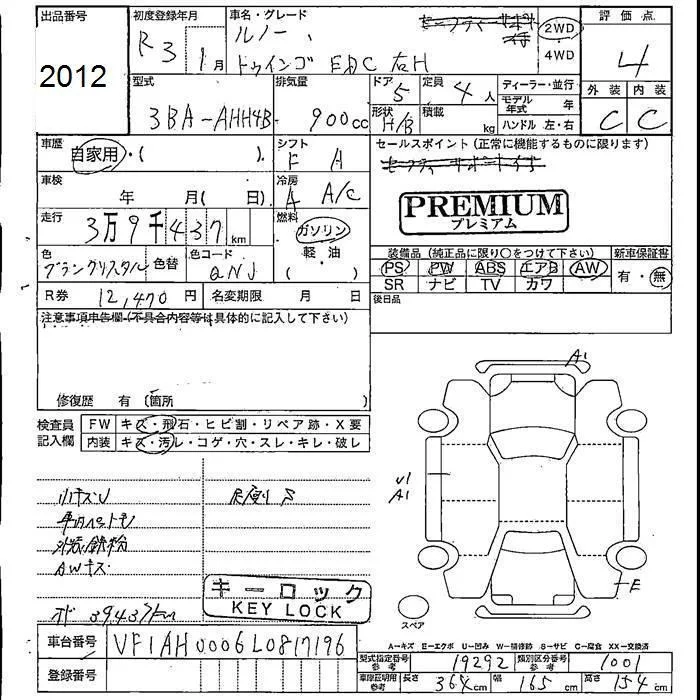 出品番号
2012
初度登録年月
R3 1月
車名・グレード
ルノー
トゥインゴ EDC 右H
2WD
・4WD
評価点
4
外装 内装
C C
型式
3BA-AHH4B
排気量
900cc
ドア 5
形状 H/B
定員 4人
積載 kg
ディーラー・並行
モデル年式 年
ハンドル 左・右
車歴
自家用・( ).
シフト
F A
セールスポイント(正常に機能するものに限ります)
車検
年 月( 日)
冷房
A A/C
PREMIUM
プレミアム
走行
3万9千437km
燃料
ガソリン
軽・油
( )
色
ブラングリスタル
色替
色コード
QNJ
装備品(純正品に限り○をつけて下さい)
PS PW ABS エアB AW
SR ナビ TV カワ
新車保証書
有・無
R券 12,470円 名変期限 月 日
後日品
注意事項申告欄(不具合内容等は具体的に記入して下さい)
修復歴 有(箇所
検査員
記入欄
FW キズ・飛石・ヒビ割・リペア跡・X要
内装 キズ・汚レ・コゲ・穴・スレ・キレ・破レ
小キズU
尺渡り S
外装鉄粉
AWキス
39437km
キーロック
KEY LOCK
A1
U1
A1
E
スペア
車台番号 VF1AH0006L0817196
登録番号
A-キズ E-エクボ U-凹み W-補修跡 S-サビ C-腐食 XX-交換済
型式指定番号 参考 19292 類別区分番号 参考 1001
車庫証明用 参考 長さ 364cm 幅 165cm 高さ 154cm